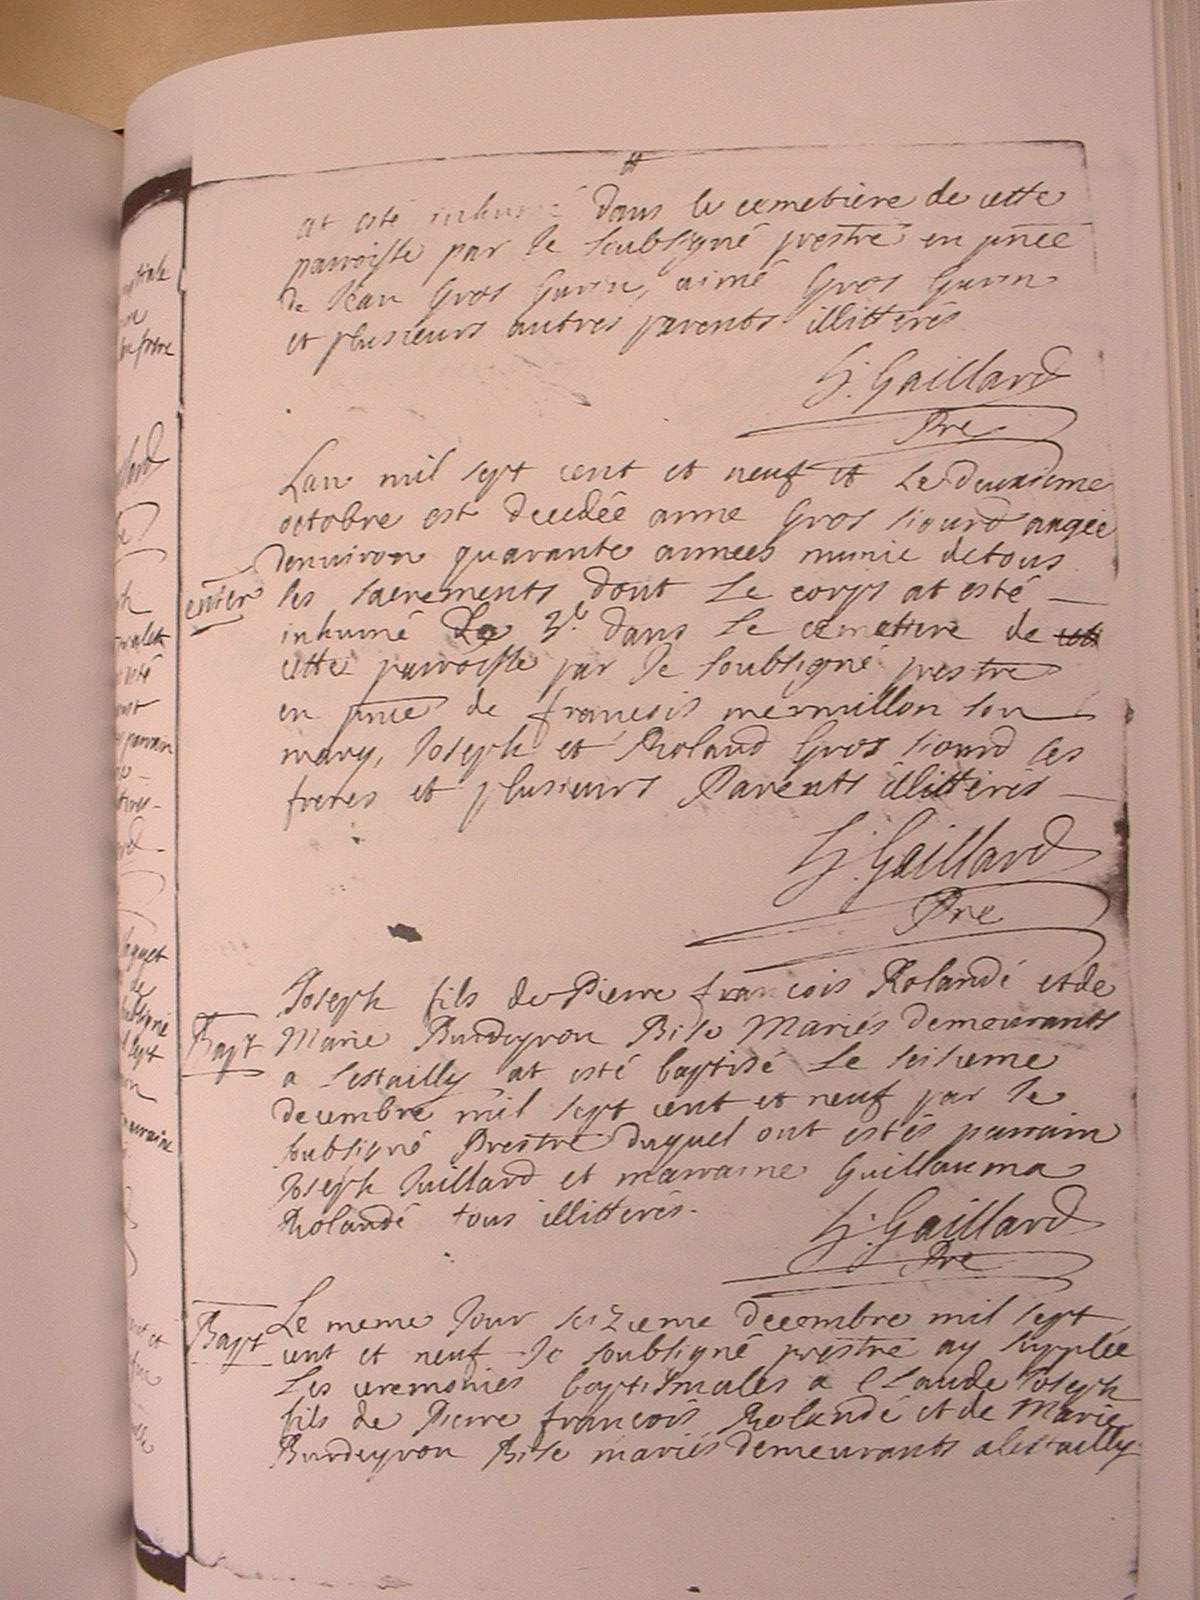 at esté inhumé dans le cemetière de cette
parroisse par Je soubsigné prestre en pñce
de Jean Gros Gurin, aimé Gros Gurin
et plusieurs autres parents illitterés
Gaillard
Pre
Lan mil sept cent et neuf et Le deuxieme
octobre est decedée anne Gros Liourd angée
denviron quarante annees munie de tous
enter
les sacrements dont Le corps at esté
inhumé Le 3e dans Le cemettire de
cette parroisse par Je soubsigné prestre
en pñce de françois mermillon son
mary, Joseph et Roland Gros Liourd ses
freres et plusieurs Parents illitterés
Gaillard
Pre
Joseph fils de Pierre françois Rolandé et de
Bapt
Marie Burdeyron Bise Mariés demeurants
a Lestailly at esté baptisé Le seisieme
decembre mil sept cent et neuf par Je
subsigné Prestre duquel ont estés parrain
Joseph Juillard et marraine Guillauma
Rolandé tous illitterés.
Gaillard
Pre
Bapt
Le meme Jour seizieme decembre mil sept
cent et neuf Je soubsigné prestre ay supplée
Les ceremonies baptismales a Claude Joseph
fils de Pierre françois Rolandé et de Marie
Burdeyron Bise mariés demeurants a Lestailly